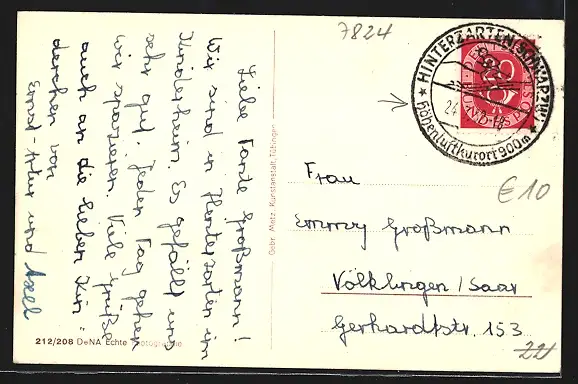 Liebe Tante Großmann!
Wir sind in Hinterzarten im
Kinderheim. Es gefällt uns
sehr gut. Jeden Tag gehen
wir spazieren. Viele Grüße
auch an die lieben Kin-
derchen von
Ernst-Peter und Axel
212/208 DeNA Echte Fotographie
Gebr. Metz, Kunstanstalt, Tübingen
7824
HINTERZARTEN (SCHWARZW)
Höhenluftkurort 900m
DEUTSCHE
BUNDESPOST
Frau
€10
Emmy Großmann
Völklingen / Saar
Gerhardtstr. 153
22